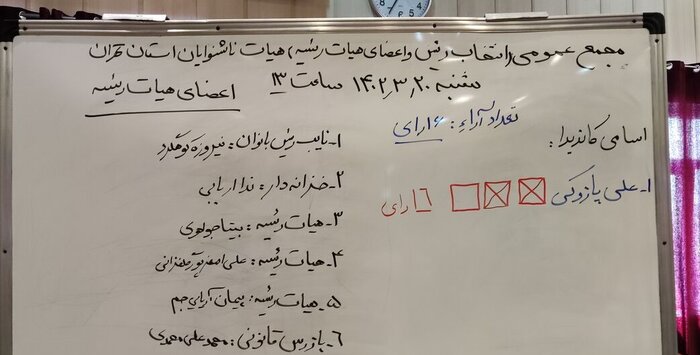 مجمع عمومی (انتخاب رئیس و اعضای هیات رئیسه) هیات ناشنوایان استان تهران
شنبه ۱۴۰۲,۳,۲۰ ساعت ۱۳
اسامی کاندیدا:
تعداد آراء: ۱۶ رای
۱- علی پازوکی
۱۶ رای
اعضای هیات رئیسه
۱- نایب رئیس بانوان: فیروزه کوهگرد
۲- خزانه دار: ندا اربابی
۳- هیات رئیسه: بیتا جولوی
۴- هیات رئیسه: علی اصغر
۵- هیات رئیسه: پیمان آریایی جم
۶- بازرس قانونی: محمد علی محمدی